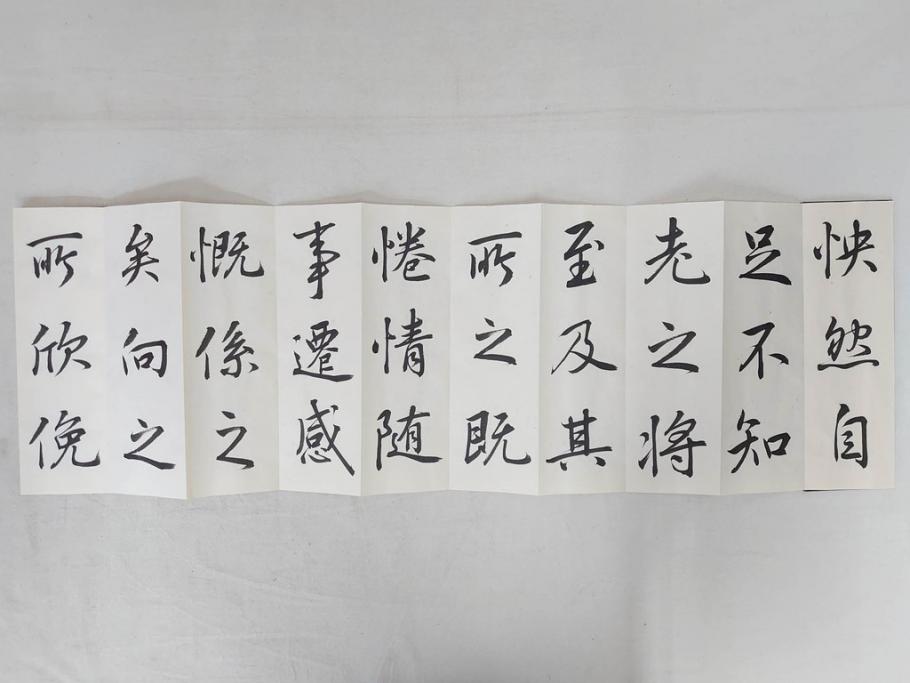 怏然自
足不知
老之将
至及其
所之既
惓情随
事遷感
慨係之
矣向之
所欣俛